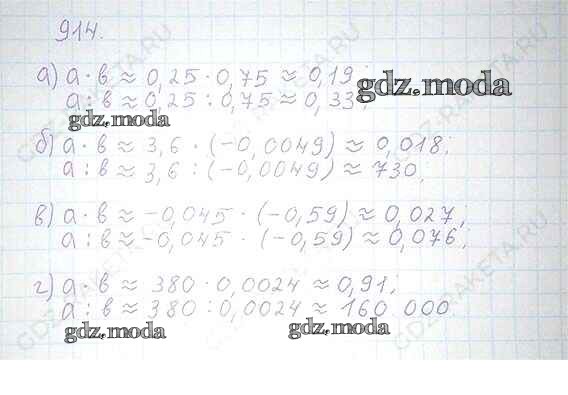 914.
а) а · в ≈ 0,25 · 0,75 ≈ 0,19;
gdz.moda
а : в ≈ 0,25 : 0,75 ≈ 0,33;
gdz.moda
б) а · в ≈ 3,6 · (-0,0049) ≈ 0,018;
а : в ≈ 3,6 : (-0,0049) ≈ 730;
в) а · в ≈ -0,045 · (-0,59) ≈ 0,027;
а : в ≈ -0,045 · (-0,59) ≈ 0,076;
г) а · в ≈ 380 · 0,0024 ≈ 0,91;
а : в ≈ 380 : 0,0024 ≈ 160 000
gdz.moda
gdz.moda
GDZ-RAKETA.RU
GDZ-RAKETA.RU
GDZ-RAKETA.RU
GDZ-RAKETA.RU